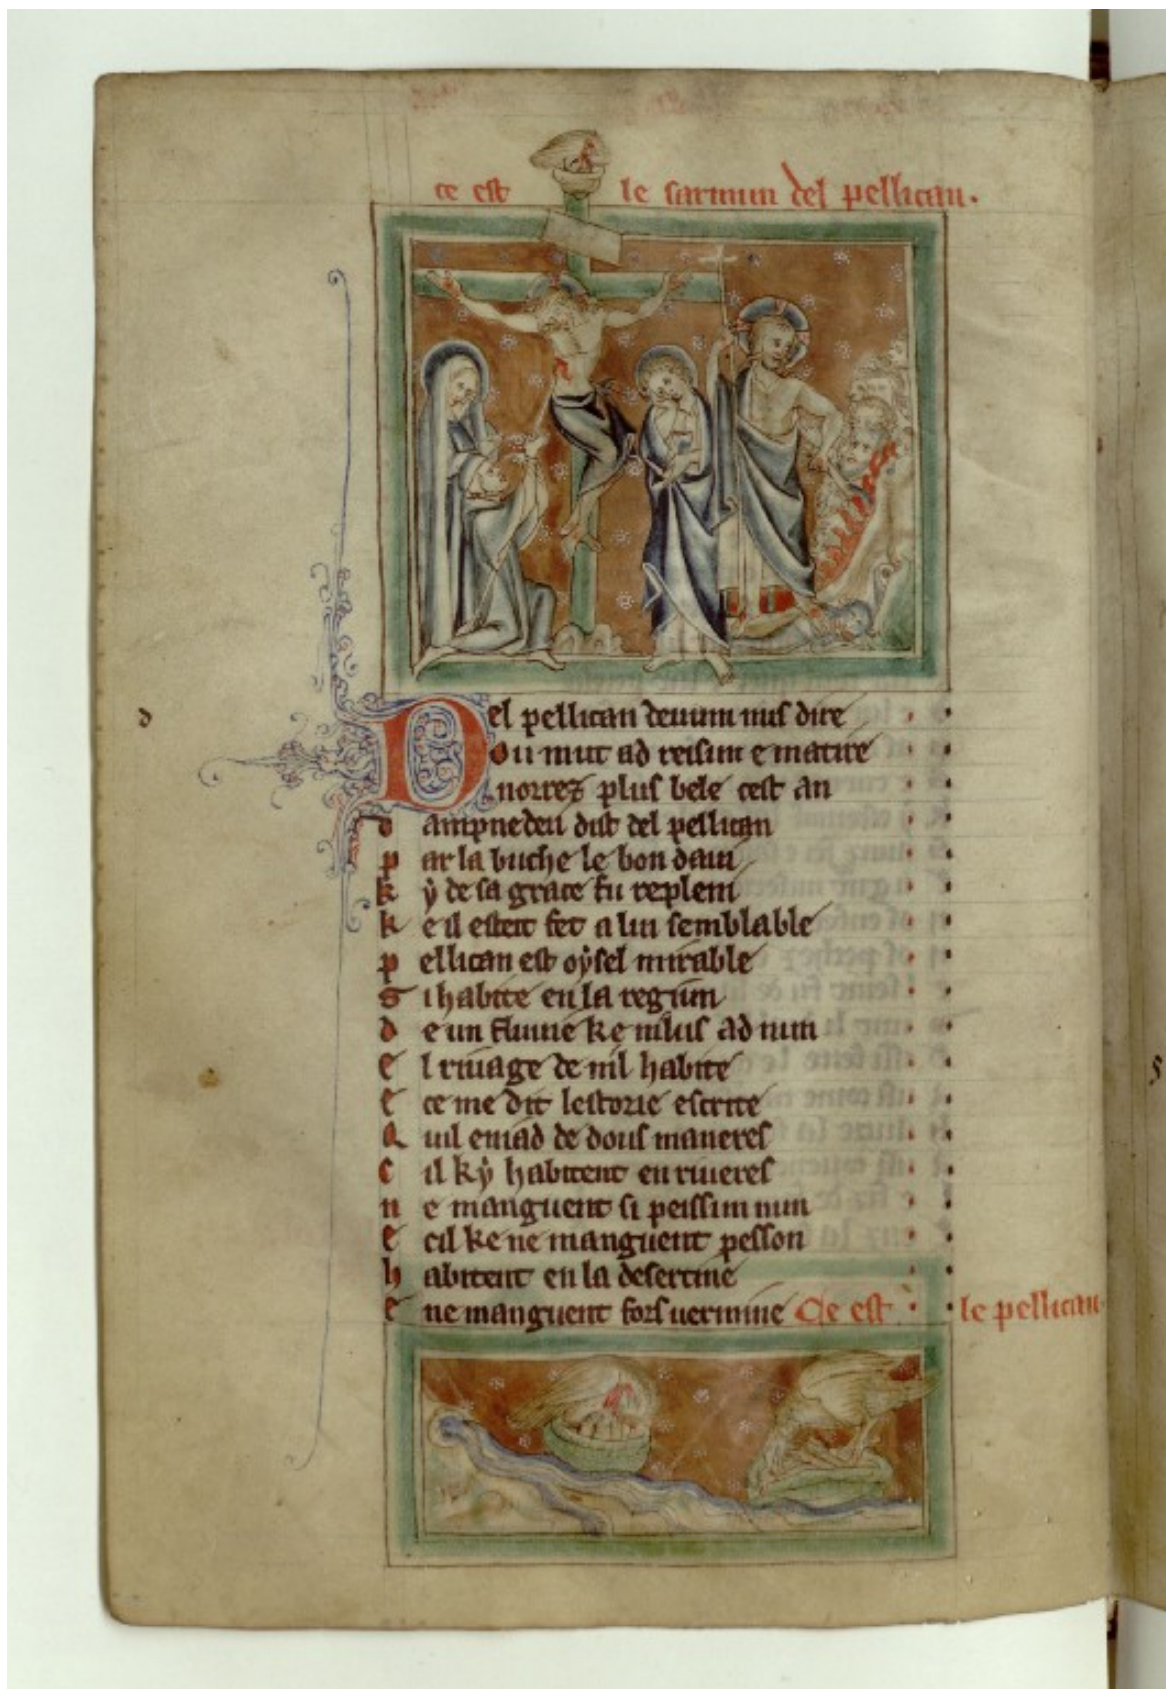 ce est le sarmun del pellican.
d
Del pellican deuum nus dire
Dou mut ad reisun e matire
norrez plus bele cest an
dampnedeu dist del pellican
par la buche le bon daui
ky de sa grace fu repleni
ke il esteit fet a lui semblable
pellican est oysel mirable
si habite en la regiun
de un fluuie ke nilus ad nun
el riuage de nil habite
e ce me dit lestorie escrite
Quil en iad de dous maneres
cil ky habitent en riueres
ne manguent si peissun nun
e cil ke ne manguent pesson
habitent en la desertine
e ne manguent fors uermine Ce est le pellican.